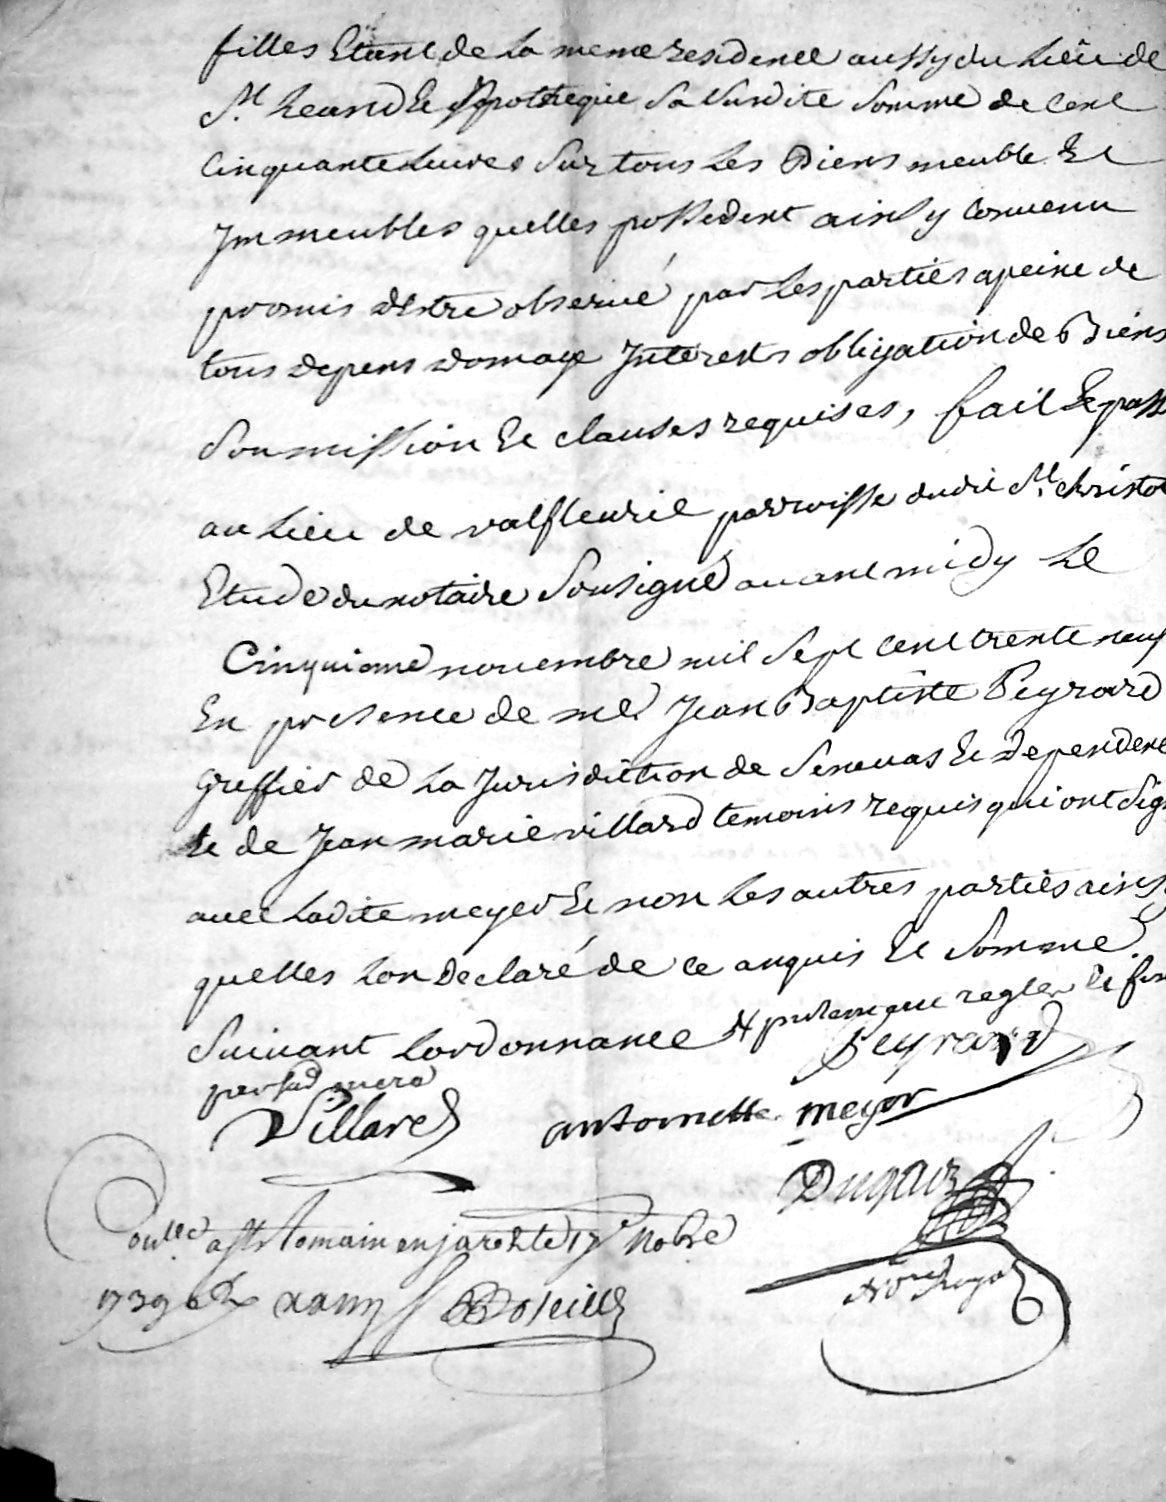 filles Etant de la meme residence aussy du lieu de
St heand & hypotheque la susdite somme de cent
Cinquante Livres sur tous les Biens meuble Et
Immeubles quelles possedent ainsy convenu
promis d'estre observé par les parties apeine de
tous depens domage Interests obligation de Biens
Soumission Et clauses requises, fait & pass
au lieu de valfleurie parroisse dudit St. christo
Etude du notaire Sousigné avant midy Le
Cinquieme novembre mil sept cent trente neuf
En presence de me Jean Baptiste Peyrard
greffier de La Jurisdiction de Senevas Et Dependene
Et de Jean marie villard temoins requis qui ont sig
avec Ladite meyer Et non les autres parties ainsy
quelles Lon declaré de ce anquis Et Sommé
Suivant Lordonnance
Peyrard
Villard antoinette meyor
Duguz
a St Romain en jarest le 17e Nobre
1739
No. Royal